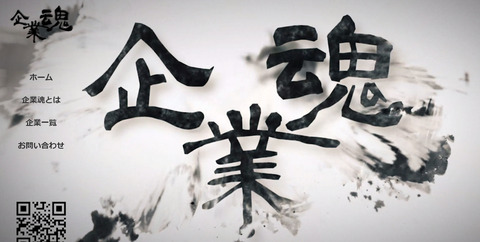 企業魂
ホーム
企業魂とは
企業一覧
お問い合わせ
企業魂